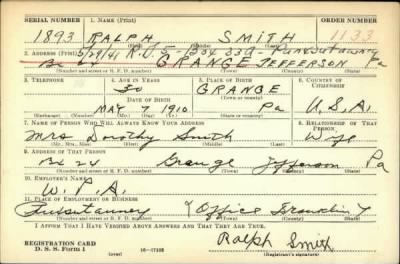 SERIAL NUMBER 1. NAME (Print) ORDER NUMBER
1893 RALPH SMITH 1133
2. ADDRESS (Print) 5/29/41 R.D. 5 - Box 339 - Punxsutawney
Bx 24 GRANGE JEFFERSON Pa
(Number and street or R. F. D. number) (Town) (County) (State)
3. TELEPHONE 4. AGE IN YEARS 5. PLACE OF BIRTH 6. COUNTRY OF CITIZENSHIP
30 GRANGE
DATE OF BIRTH (Town or county)
MAY 7 1910 Pa U.S.A.
(Exchange) (Number) (Mo.) (Day) (Yr.) (State or country)
7. NAME OF PERSON WHO WILL ALWAYS KNOW YOUR ADDRESS 8. RELATIONSHIP OF THAT PERSON
Mrs Dorothy Smith Wife
(Mr., Mrs., Miss) (First) (Middle) (Last)
9. ADDRESS OF THAT PERSON
Bx 24 Grange Jefferson Pa
(Number and street or R. F. D. number) (Town) (County) (State)
10. EMPLOYER'S NAME
W.P.A.
11. PLACE OF EMPLOYMENT OR BUSINESS
Punxsutawney (Office Franklin)
(Number and street or R. F. D. number) (Town) (County) (State)
I AFFIRM THAT I HAVE VERIFIED ABOVE ANSWERS AND THAT THEY ARE TRUE.
REGISTRATION CARD Ralph Smith
D. S. S. Form 1 (over) 16-17105 (Registrant's signature)